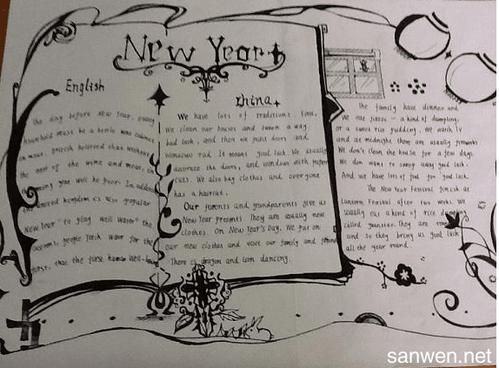 New Year
English
The day before New year, every
household must be a bottle wine
the rest of the wine and meat, in
coming year will be poor. In addition
united kingdom is also popular
New Year "to plug well water" the
people fetch water for the
first, that the first
China
We have lots of traditions time,
We clean our houses and sweep a way
bad luck, and then we paint doors and
windows red. It means good luck. We usually
decorate the doors and windows with paper
cuts. We also buy clothes and everyone
has a haircut.
Our parents and grandparents give us
New Year presents. They are usually new
clothes. On New Year's Day, we put on
our new clothes and visit our family and friends
There is dragon and lion dancing.
The family have dinner and
we eat jiaozi - a kind of dumpling,
or a sweet rice pudding, we watch TV
and at midnight there are usually fireworks
We don't clean the house for a few days.
We don want to sweep away good luck.
And we have lots of food for good luck.
The New Year Festival finish at
Lantern Festival after two weeks. We
usually eat a kind of rice
called yuanxiao. They are
and so they bring us good luck
all the year round.
sanwen.net